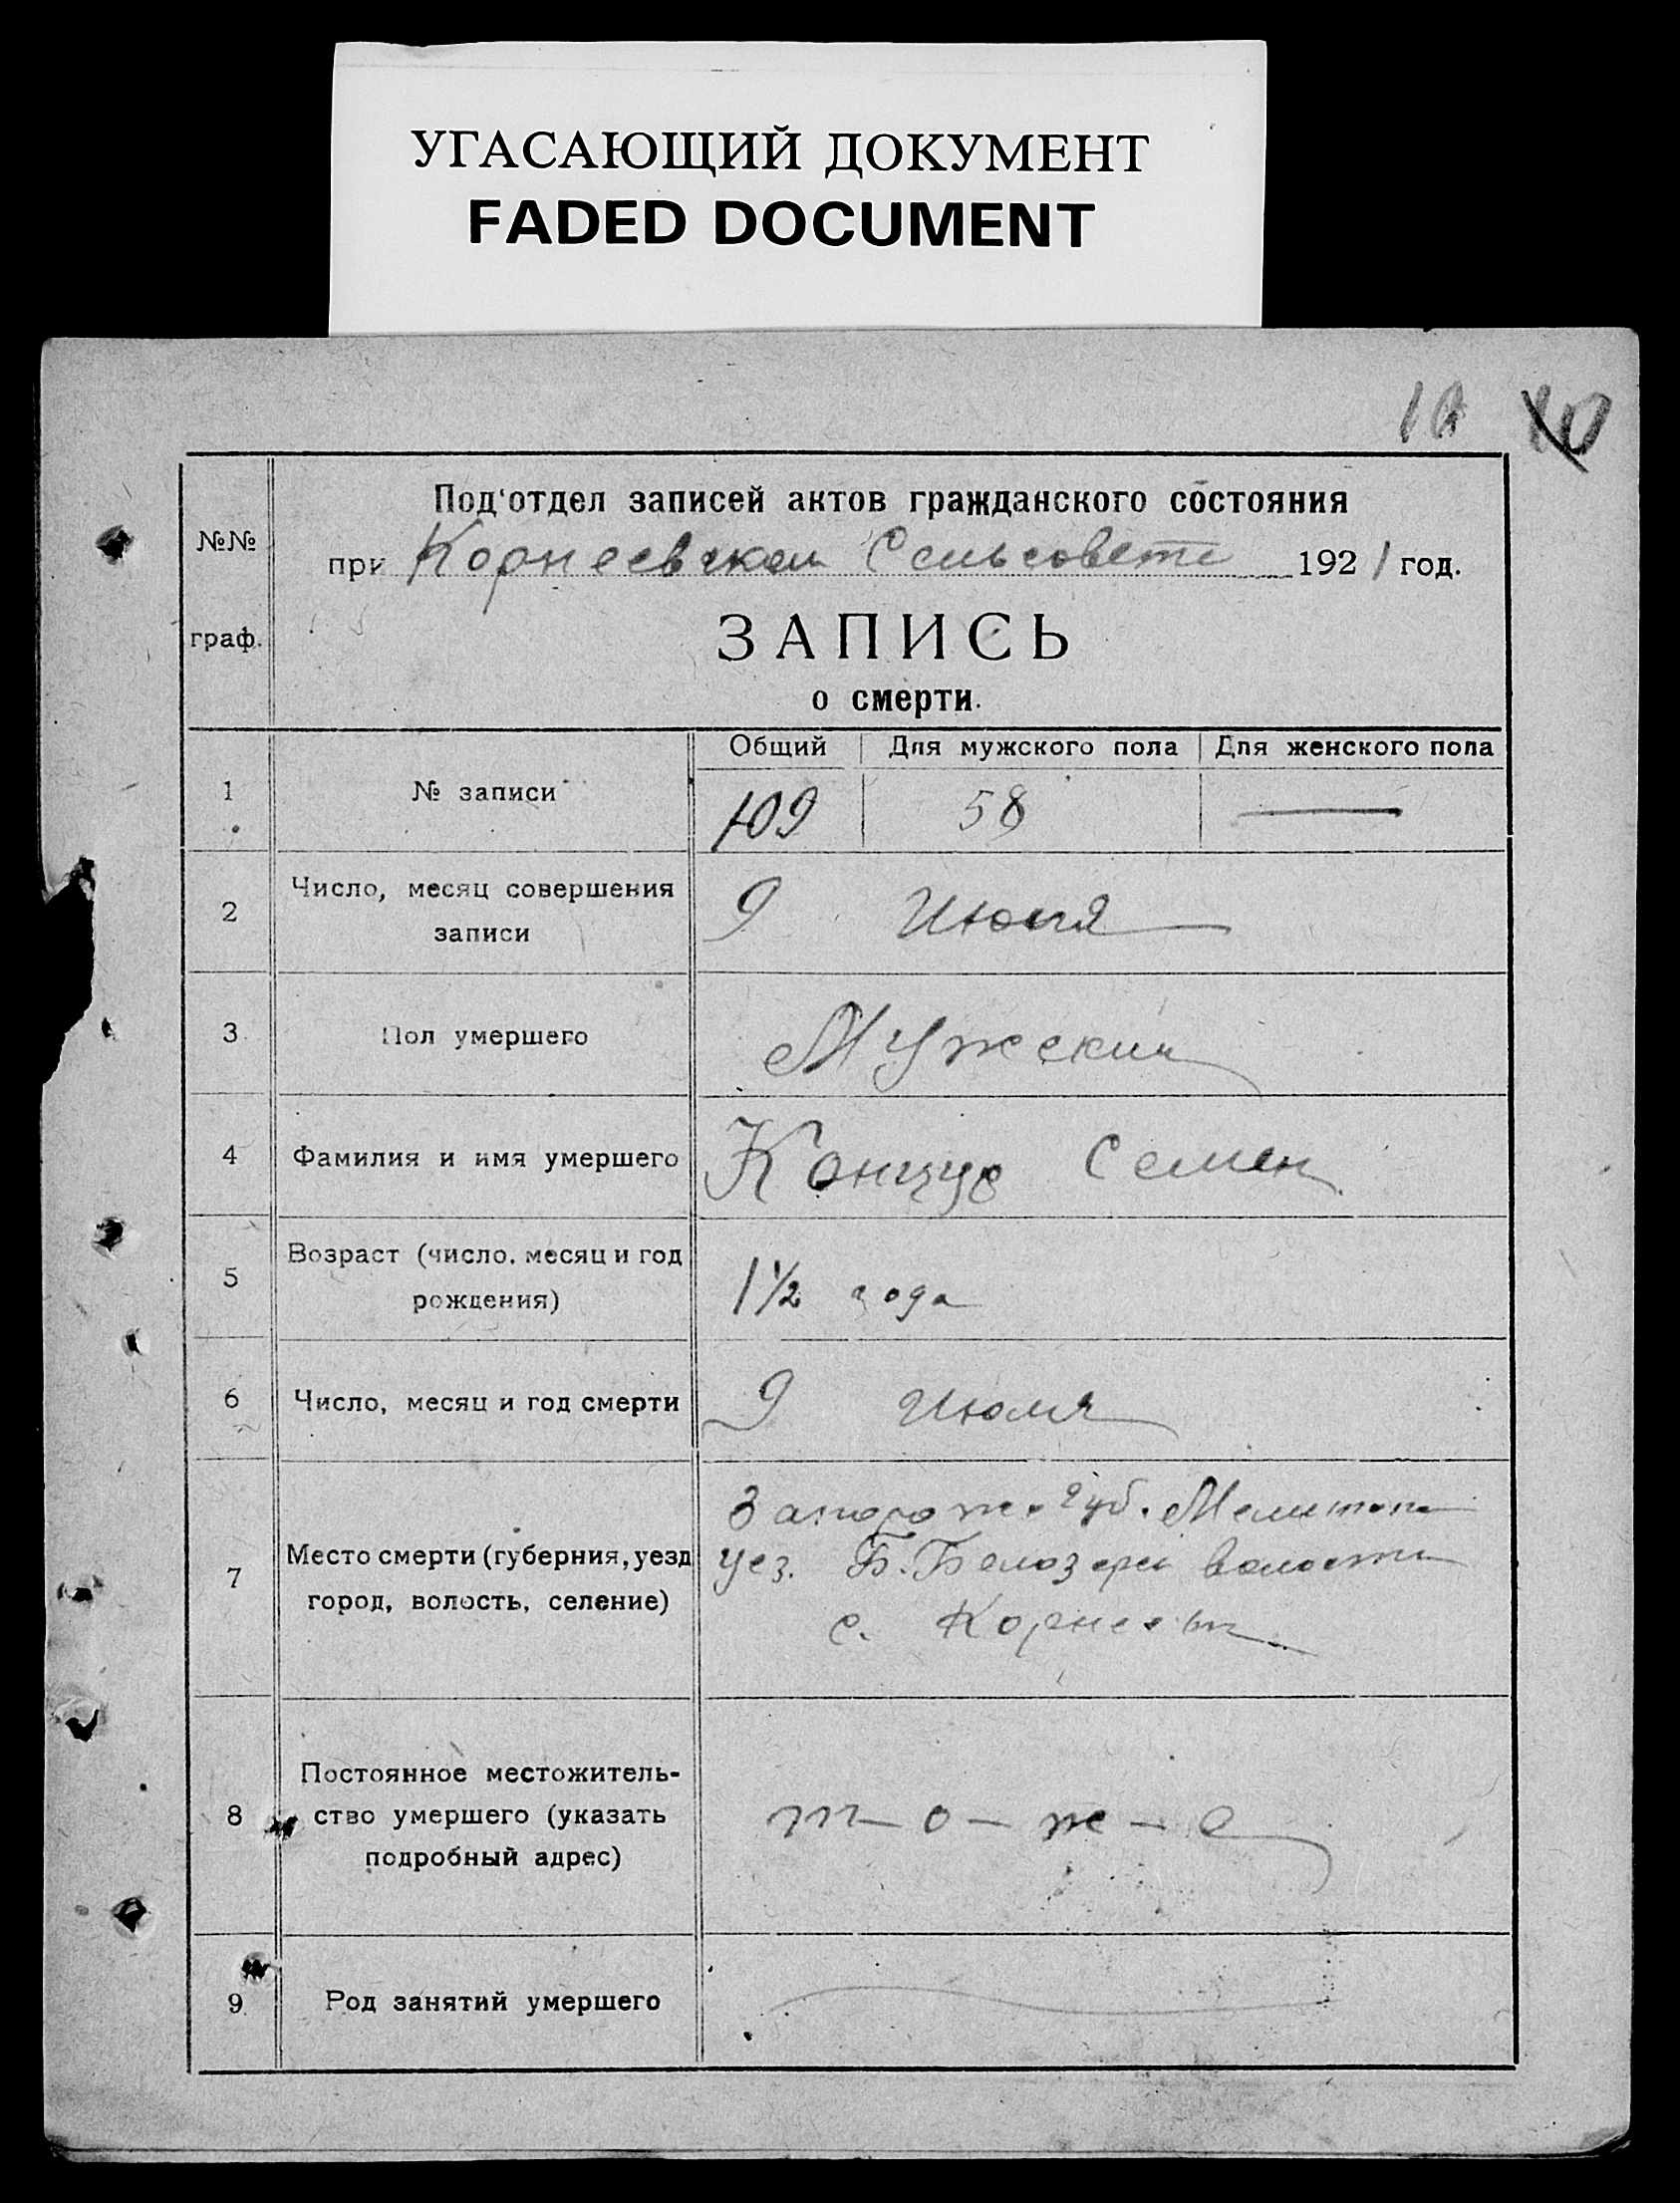 УГАСАЮЩИЙ ДОКУМЕНТ
FADED DOCUMENT
10
Под'отдел записей актов гражданского состояния
№№
граф.
при Корнеевском Сельсовете 1921 год.
ЗАПИСЬ
о смерти.
Общий Для мужского пола Для женского пола
1 № записи 109 58 —
2 Число, месяц совершения
записи
9 Июля
3 Пол умершего Мужской
4 Фамилия и имя умершего Семен
5 Возраст (число, месяц и год
рождения)
1½ года
6 Число, месяц и год смерти 9 Июля
7 Место смерти (губерния, уезд
город, волость, селение)
Запорож. губ. Мелитоп
уез. Б. Белозерс волости
с.
8 Постоянное местожитель-
ство умершего (указать
подробный адрес)
т-о-ж-е
9 Род занятий умершего